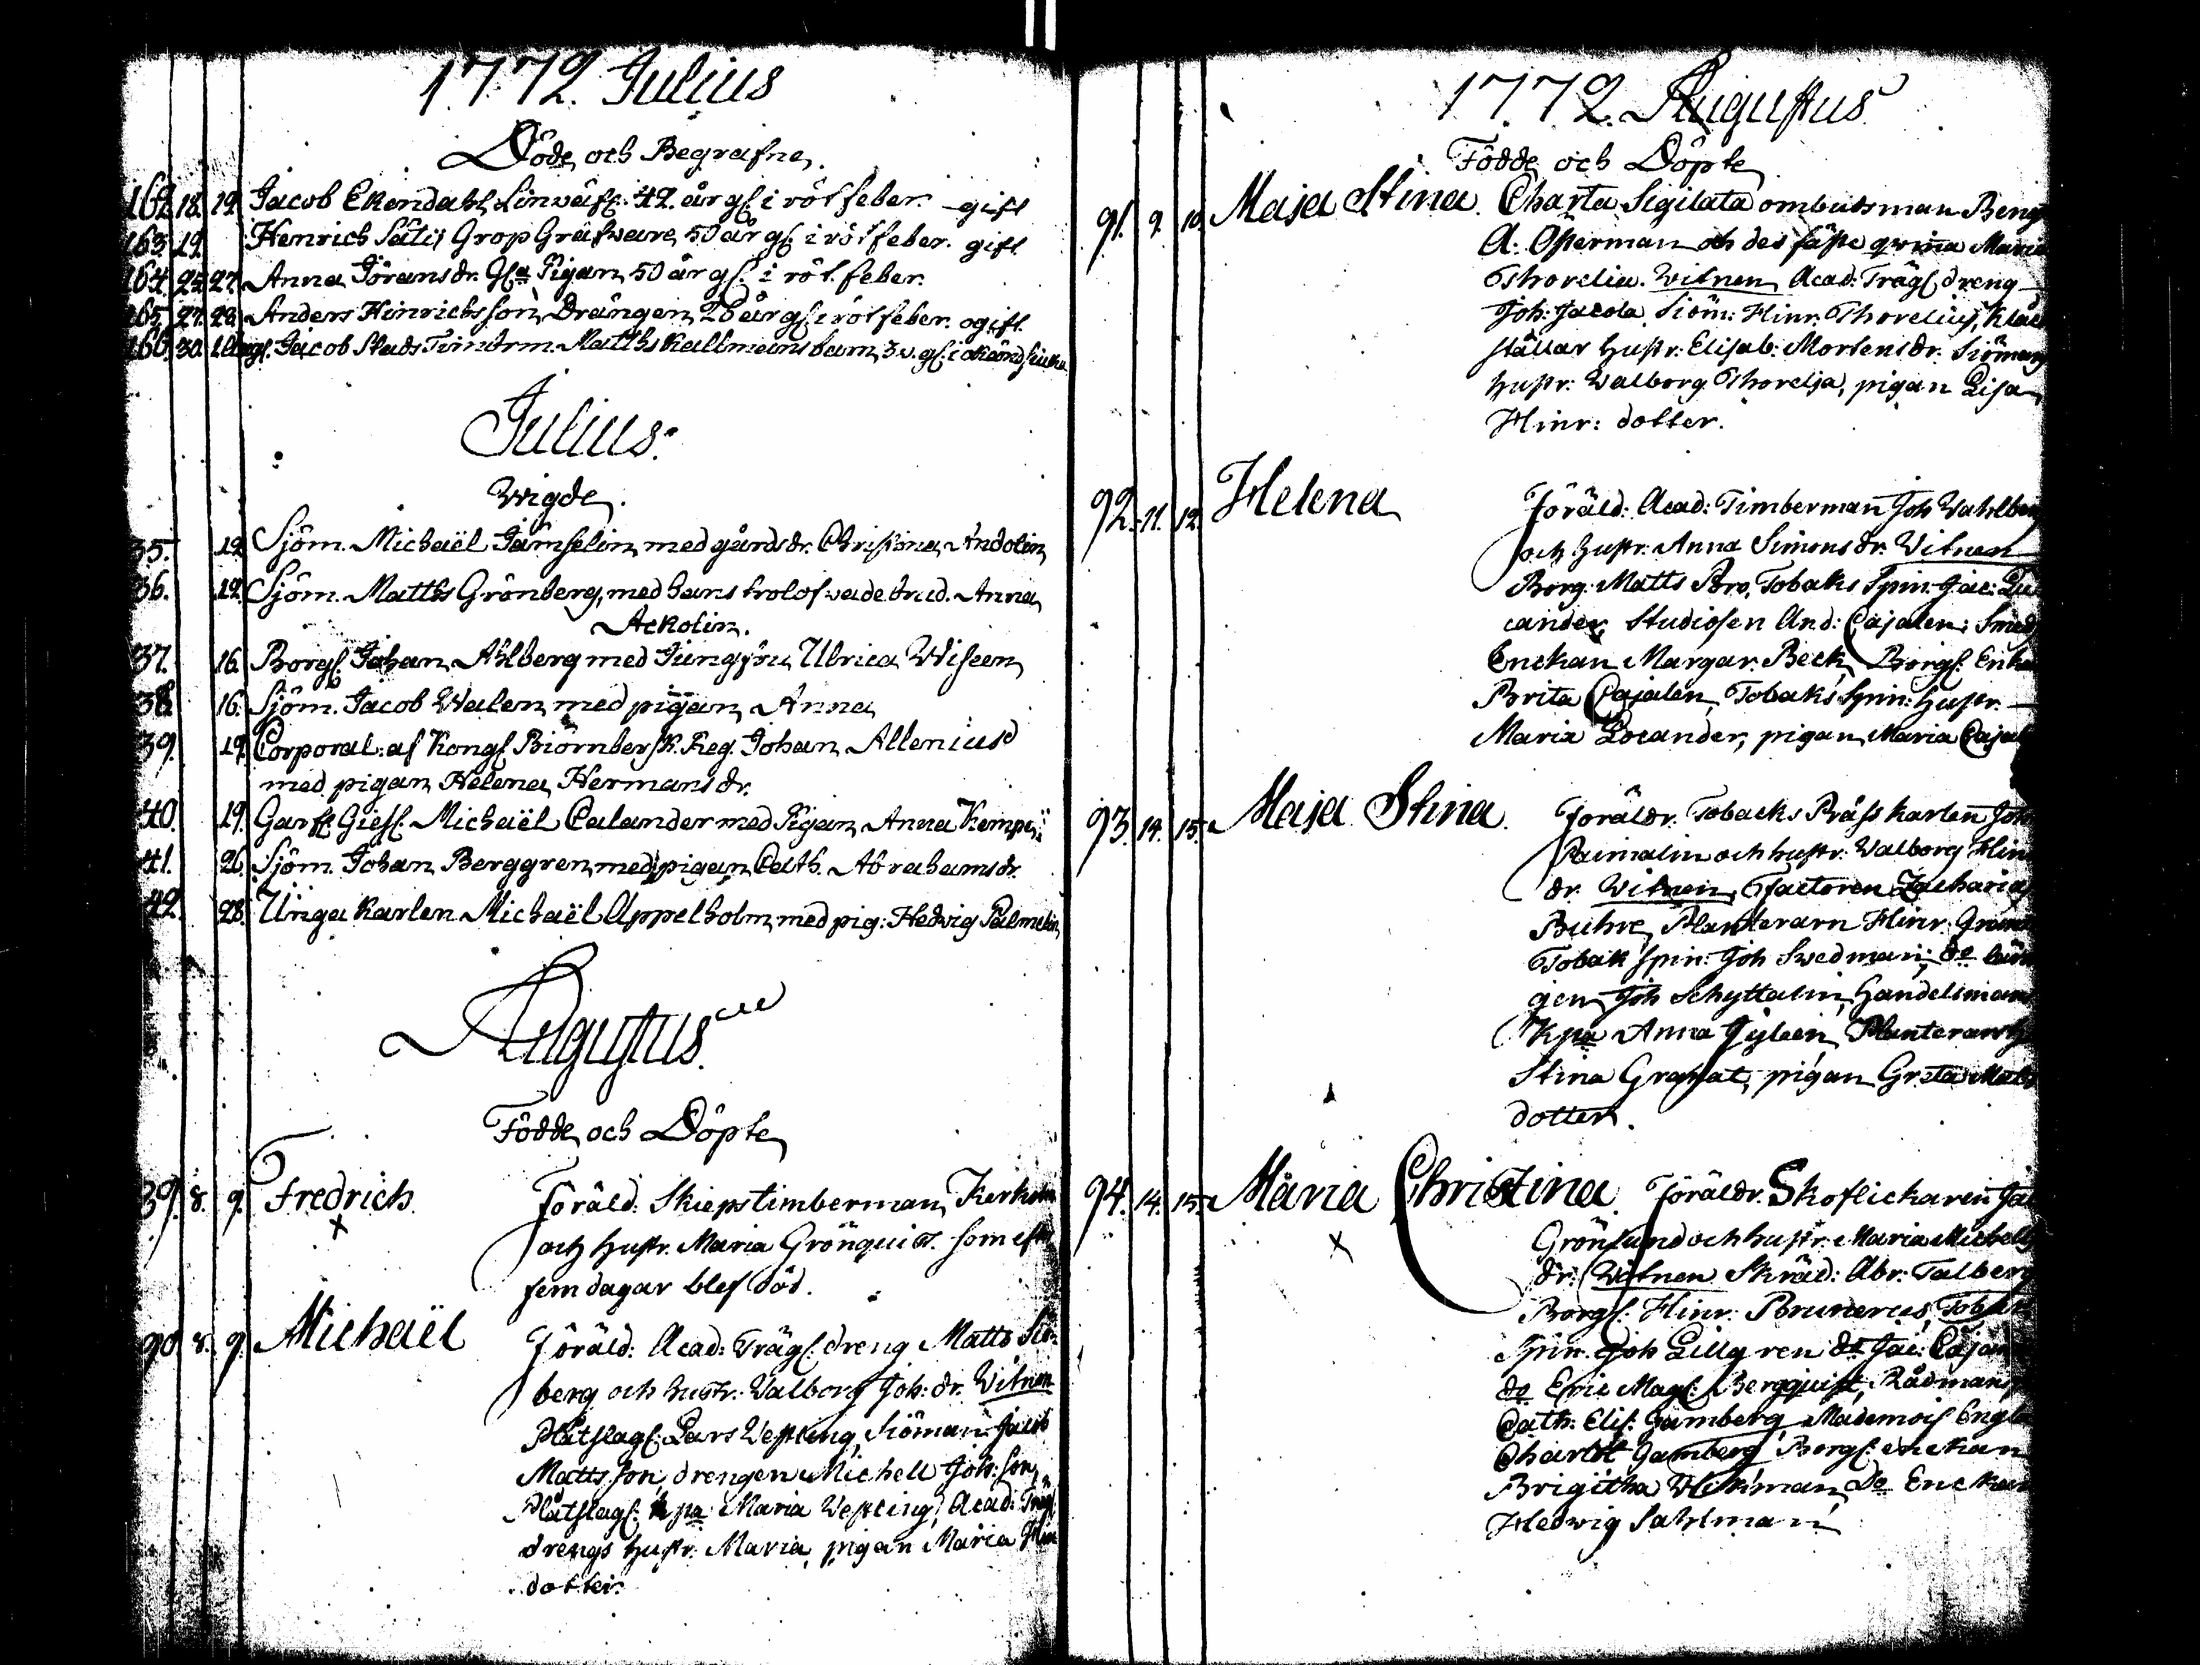 1772. Julius
Döde och Begrafne.
162. 18. 19. Jacob Ekendahl Linwäfv: 42. år gl. i röt feber. gift
163. 19. Henrich Sätij Grop Gräfware, 50 år gl. i röt feber. gift
164. 25. 27. Anna Jöransdr. Gla Pigan, 50 år gl. i röt. feber.
165. 27. 28. Anders Hinrichsson Drängen, 26 år gl. i röt feber. ogift.
166. 30. Jacob Stads Timbrm. Matths Kallmans barn, 3 v. gl. i okänd siuka
Julius.
Wigde.
35. 12. Sjöm. Michaël Jämselin, med gårdsdr. Christina Andolin
36. 12. Sjöm. Matths Grönberg, med hans trolofvade brud. Anna
Ackolin.
37. 16. Borgl. Johan Ahlberg med Jungfru Ulrica Wiseen
38. 16. Sjöm. Jacob Walen, med pigan Anna
39. 19. Corporal. af Kongl. Biörnb: sk. Reg. Johan Allenius
med pigan Helena Hermansdr.
40. 19. Garfv. Giesl. Michaël Calander med Pigan Anna Kempe
41. 26. Sjöm. Johan Berggren, med pigan Cath. Abrahamsdr.
42. 28. Unga Karlen Michaël Appelholm, med pig: Hedvig Palmelin
Augustus.
Födde och Döpte
39. 8. 9. Fredrich Föräld: Skiepstimberman Kerkom
x och hustr. Maria Grönquist. som efter
fem dagar blef död.
90. 8. 9. Michaël Föräld: Acad: Trägl. dreng Matts Siö
berg och hustr. Valborg Joh: dr. Witnen
Plåtslagl: Lars Westling, Siöman Jacob
Mattsson, drengen Michell Joh: son,
Plåtslagl. kpa Maria Westling, Acad: Trägl.
drengs hustr. Maria, pigan Maria Hin
dotter.
1772. Augustus
Födde och Döpte
91. 9. 10. Maja Stina. Charta Sigilata ombudsman Beng
A: Osterman och des fäste qwina Maria
Thorelia. Witnen Acad: Trägl. dreng
Joh: Jacola, Siöm: Hinr. Thorelius, Kläd
ställar hustr. Elisab: Mortensdr. Siöman
hustr: Walborg Thorelja, pigan Lisa
Hinr: dotter.
92. 11. 12. Helena Föräld: Acad: Timberman Joh Wahlberg
och hustr. Anna Simonsdr. Witnen
Borg. Matts Bro, Tobaks Spin. Jac: Lu
cander, Studiosen And: Cajalen; Smed
Enckan Margar. Beck, Borgl. Enka
Brita Cajalen, Tobaks Spin: hustr.
Maria Locander, pigan Maria Cajal
93. 14. 15. Maja Stina. Föräldr. Tobacks Präss karlen Joh
Paimalin och hustr. Valborg Hin
dr. Witnen, Factoren Zacharias
Buhre, Planterarn Hinr.
Tobak spin: Joh Swedman; de
gen Joh Schyttalin, Handelsmans
kpa Anna Gyleen, Planterarns
Stina Granat, pigan Greta Mats
dotter.
94. 14. 15. Maria Christina. Föräldr. Skoflickaren Jac
x Grönlund och hustr. Maria Michels
dr. Witnen Skräd: Abr: Talberg
Borgl. Hinr. Brunerus, Tobak
Spin. Joh Lillgren do Jac: Cajan
do Eric Magl. Bergquist, Rådmans
Cath: Elis: Gamberg, Mademois Engla
Charlot Gamberg, Borgl: enckan
Brigitha Wikman, Do Enckan
Hedwig Sahlman